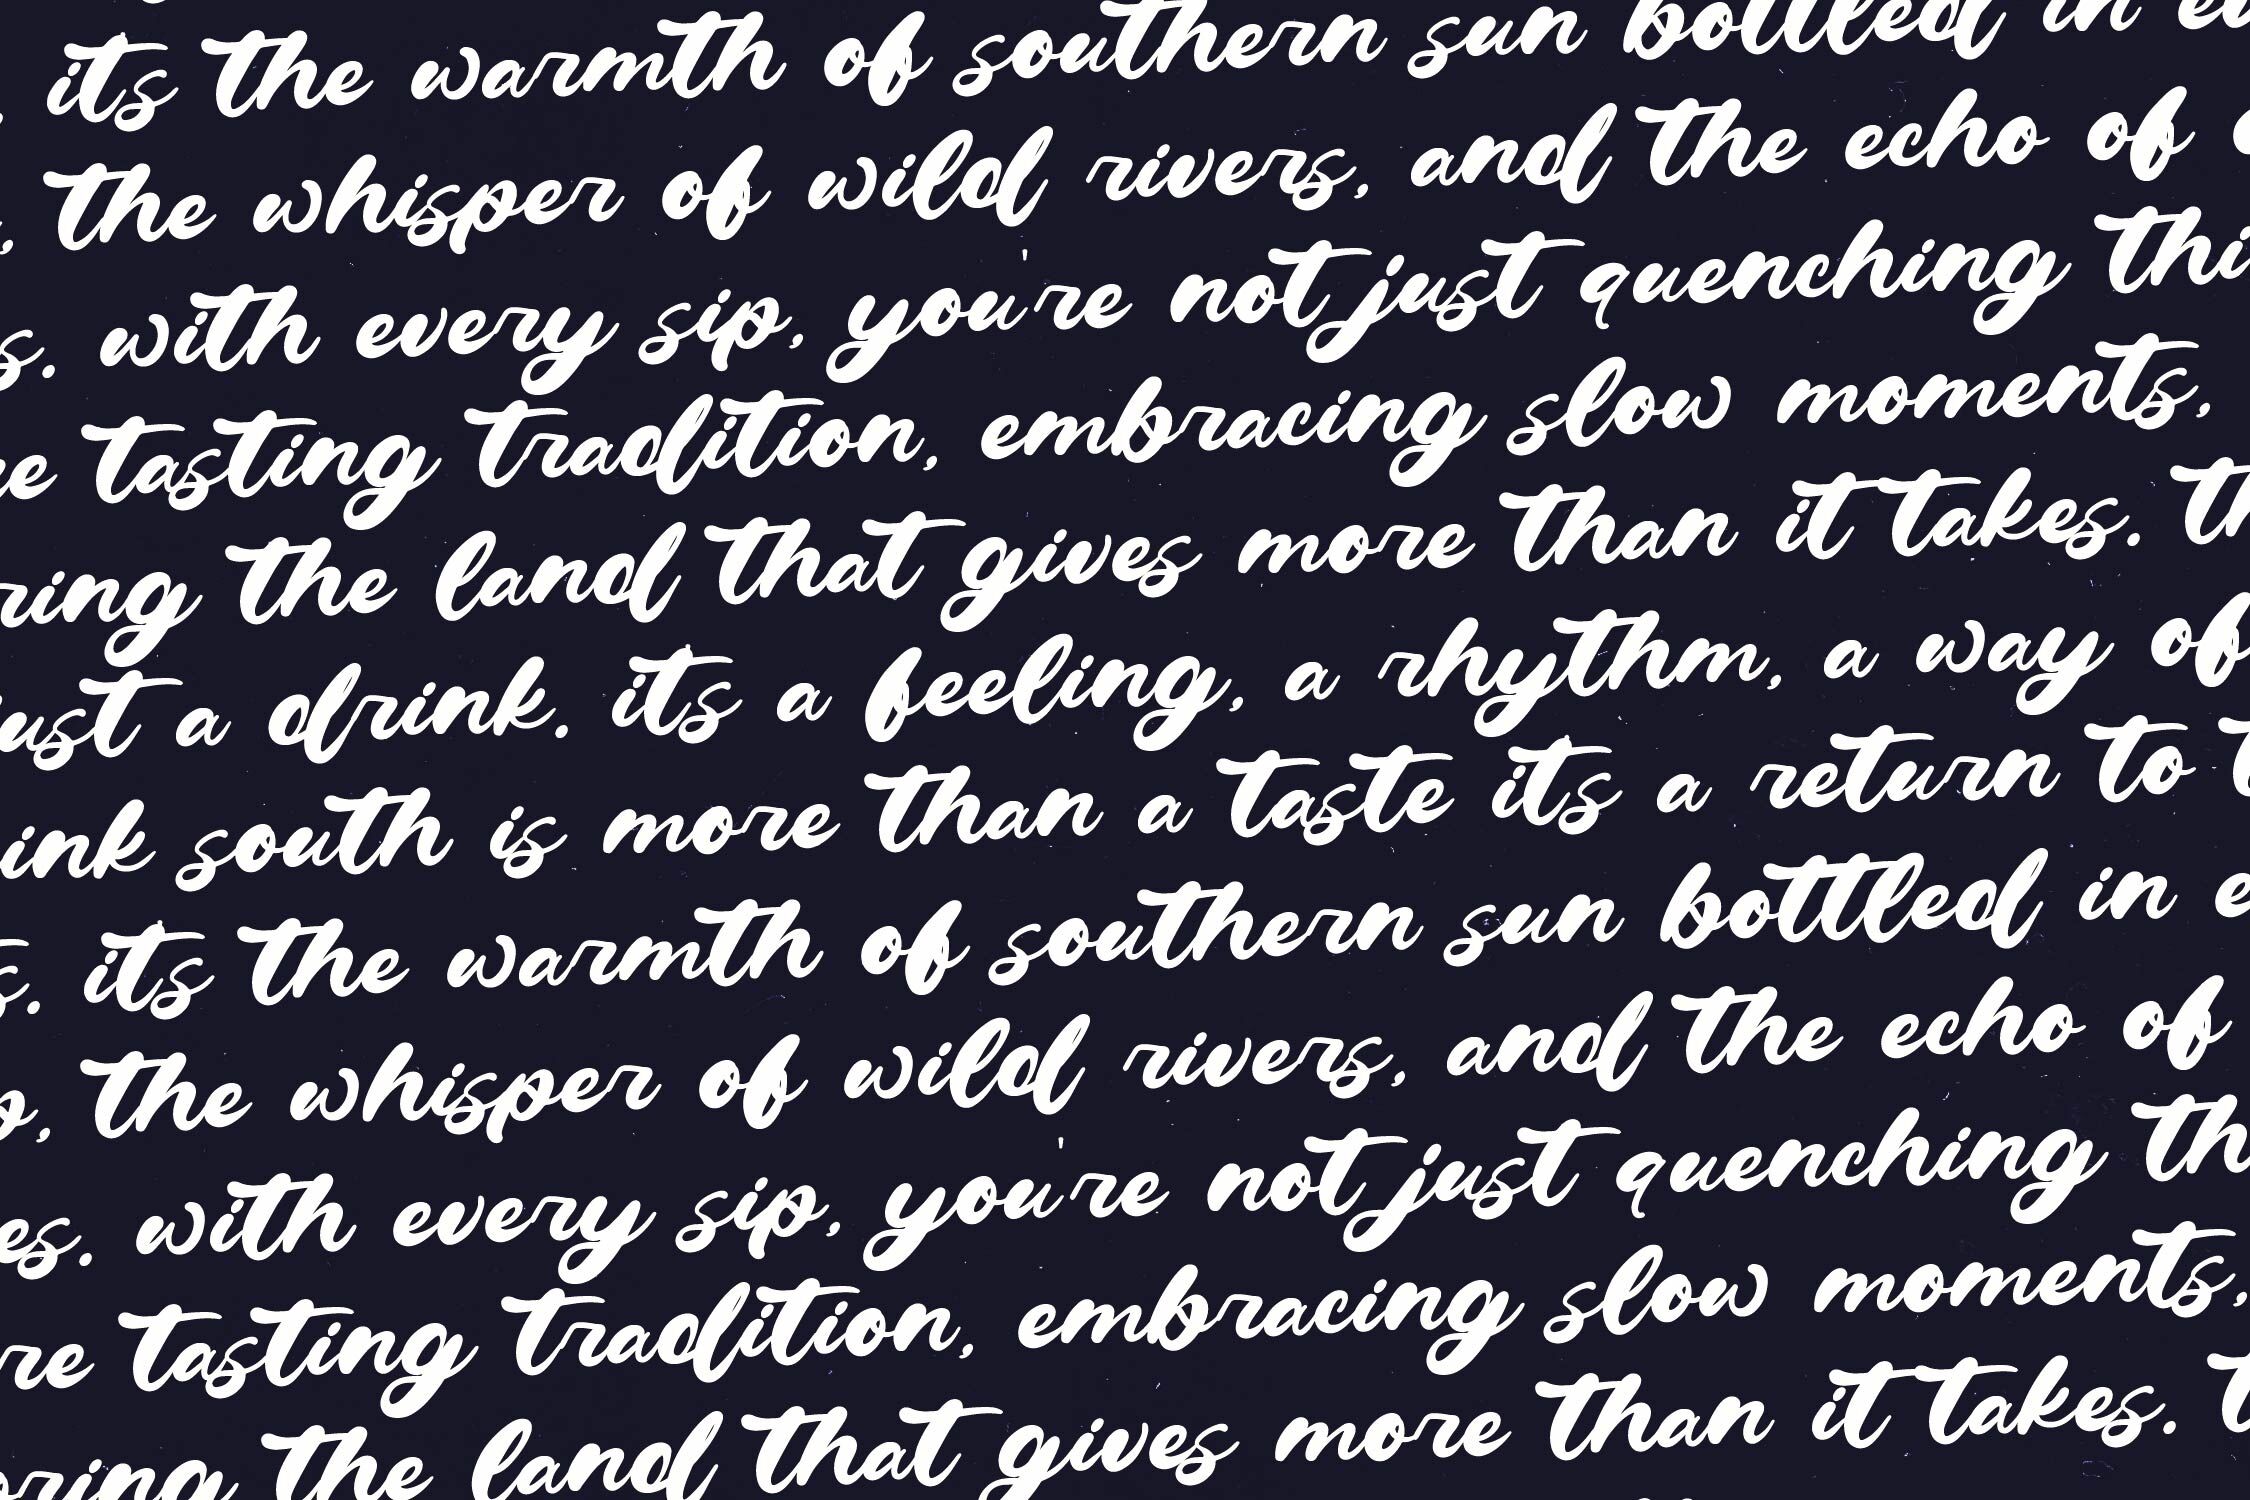 its the warmth of southern sun bottled in
the whisper of wild rivers, and the echo of
with every sip, you're not just quenching
tasting tradition, embracing slow moments,
the land that gives more than it takes.
a drink. its a feeling, a rhythm, a way of
south is more than a taste its a return to
its the warmth of southern sun bottled in
the whisper of wild rivers, and the echo of
with every sip, you're not just quenching
tasting tradition, embracing slow moments,
the land that gives more than it takes.